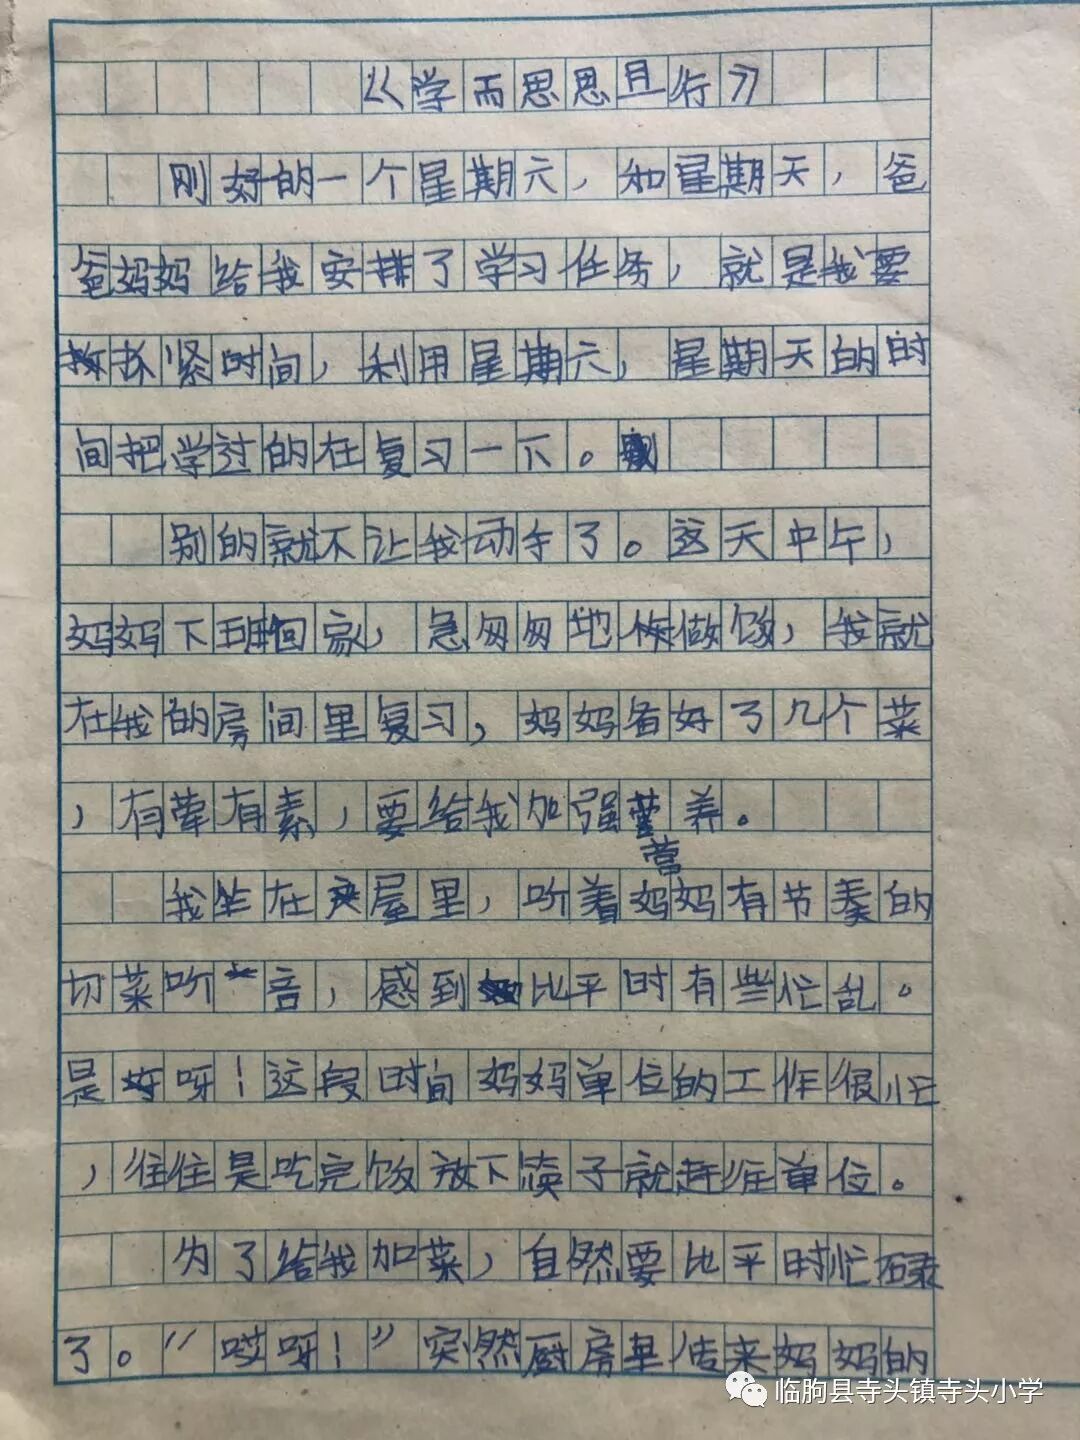 《学而思思且行》
刚好的一个星期六，和星期天，爸
爸妈妈给我安排了学习任务，就是我要
抓紧时间，利用星期六，星期天的时
间把学过的在复习一下。
别的就不让我动手了。这天中午，
妈妈下班回家，急匆匆地做饭，我就
在我的房间里复习，妈妈备好了几个菜
，有荤有素，要给我加强营养。
我坐在屋里，听着妈妈有节奏的
切菜听音，感到比平时有些忙乱。
是呀！这段时间妈妈单位的工作很忙
，往往是吃完饭放下筷子就赶往单位。
为了给我加菜，自然要比平时忙碌
了。“哎呀！”突然厨房里传来妈妈的
临朐县寺头镇寺头小学